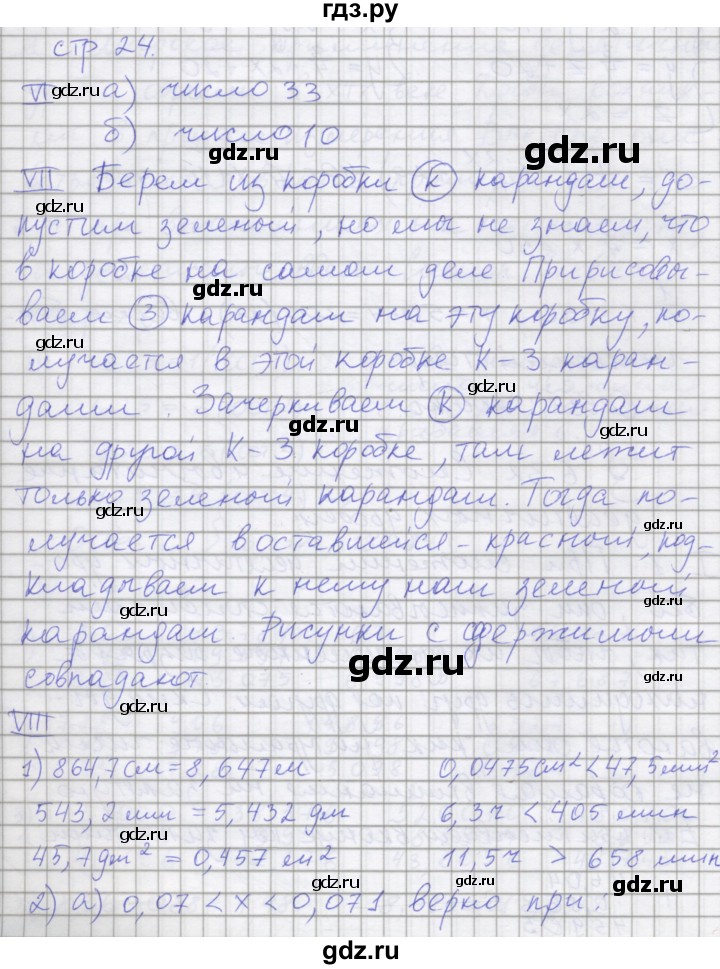 гдз.ру
стр 24.
VI gdz.ru а) число 33
б) число 10
gdz.ru
gdz.ru
VII Берем из коробки к карандаш, до-
gdz.ru
gdz.ru
пустим зеленый, но мы не знаем, что
в коробке на самом деле Пририсовы-
gdz.ru
gdz.ru
ваем 3 карандаш на эту коробку, по-
лучается в этой коробке К-3 каран-
gdz.ru
даши. Зачеркиваем к карандаш
gdz.ru
gdz.ru
на другой К-3 коробке, там лежит
только зеленый карандаш. Тогда по-
gdz.ru
gdz.ru
лучается в оставшейся - красный, под-
кладываем к нему наш зеленый
gdz.ru
gdz.ru
карандаш. Рисунки с содержимым
gdz.ru
совпадают
gdz.ru
gdz.ru
VIII
1) 864,7 см = 8,647 м 0,0475 см² < 47,5 мм²
543,2 мм = 5,432 дм 6,3 ч < 405 мин
gdz.ru
gdz.ru
45,7 дм² = 0,457 м² 11,5 ч > 658 мин
gdz.ru
gdz.ru
2) а) 0,07 < x < 0,071 верно при:
gdz.ru